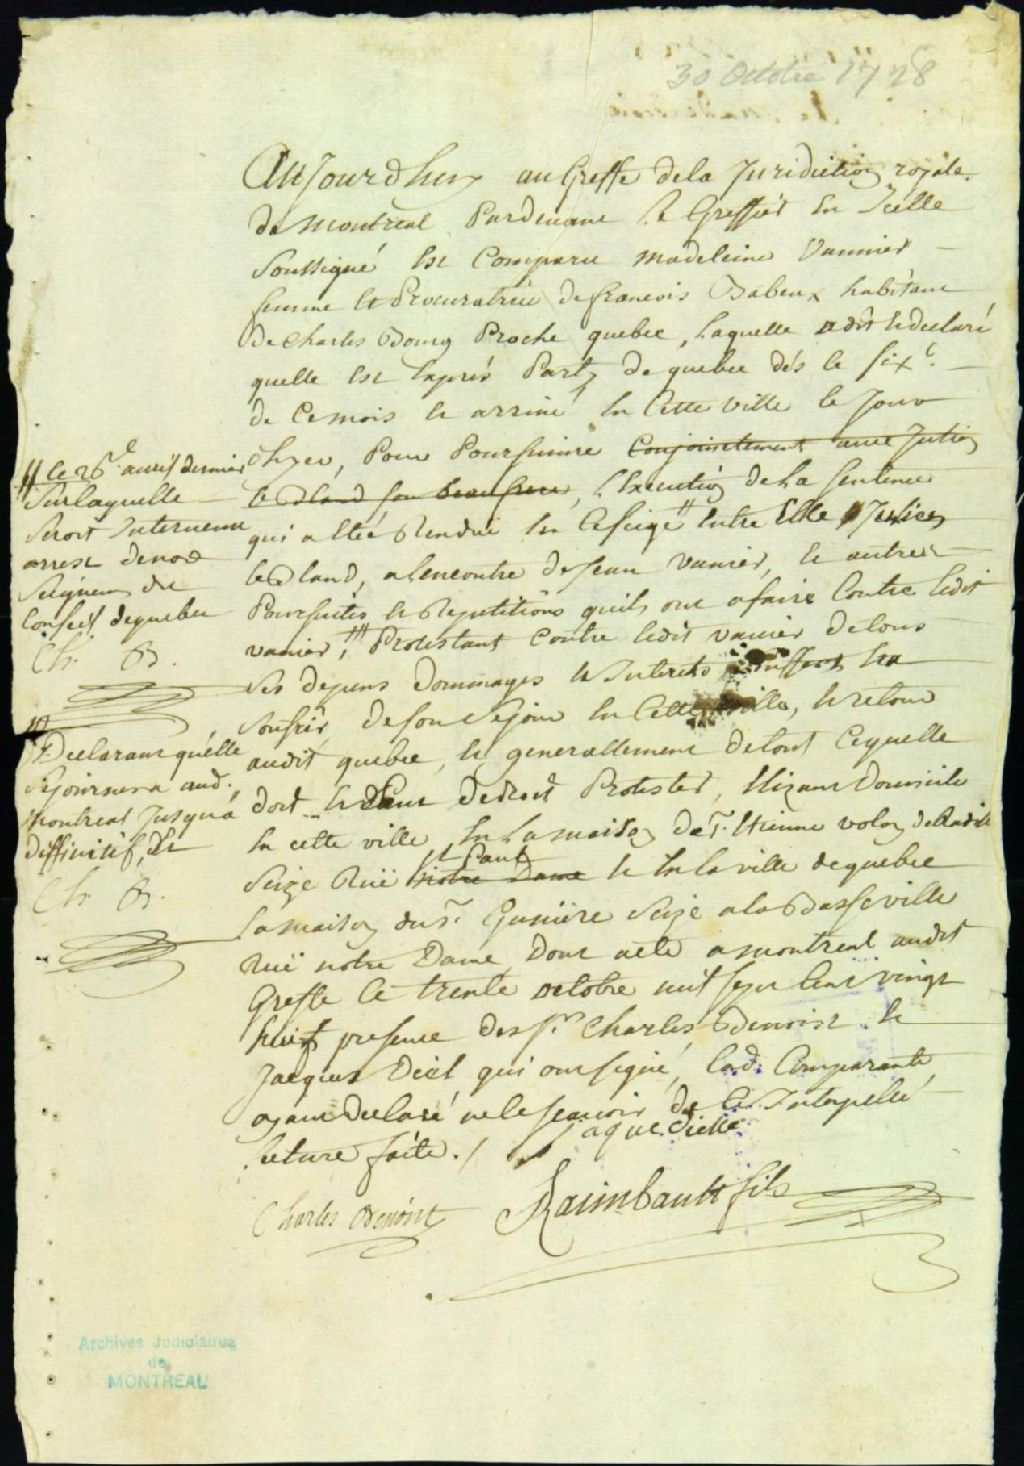 30 Octobre 1728
Aujourdhuy au Greffe de la Juridiction royale
de Montreal Pardevant le Greffier en Icelle
Soussigné est Comparu Madeleine Vannier
femme et Procuratrice de francois Babeux habitant
de Charles Bourg Proche quebec, Laquelle a dit et declaré
quelle est Exprés Party de quebec dés le six.e
de Ce mois et arrivé En Cette ville le Jour
dhyer, Pour Poursuivre Conjointement avec Julien
le Bland son beaufrere, l'Execution de La sentence
qui a eté Rendue En Ce siege # Entre Elle Julien
le Bland, alencontre de Jean Vanier, et autres
Poursuites et Repetitions quils ont a faire Contre ledit
vanier, ### Protestant Contre ledit vanier de tous
Ses depens dommages et Interets
Soufrir de son Sejour En Cette ville, et retour
audit quebec, et generallement de tout Cequelle
doit et Peut de droit Protester, Elizant Domicile
En cette ville En La maison de Sr. Etienne volan de Radi
Seize Ruë St Paul Notre Dame et En la ville de quebec
La maison du Sr. Seize a la Basse ville
Ruë notre Dame Dont acte a montreal audit
Greffe le trente octobre mil sept Cent vingt
huit presence des Srs Charles Benoist et
Jacques Diel qui ont signé, Lad. Comparante
ayant declaré ne le scavoir de Ce Interpellé
Lecture faite ./.
jaque dielle
Charles Benoist
Raimbault fils
# le 26e avril dernier
Sur laquelle
Seroit Intervenu
arrest de nos
Seigneurs du
Conseil de quebec
Ch. B.
### Declarant quelle
Sejournera aud.
Montreal Jusqua
deffinitif, Et
Ch. B.
Archives Judiciaires
de
MONTREAL